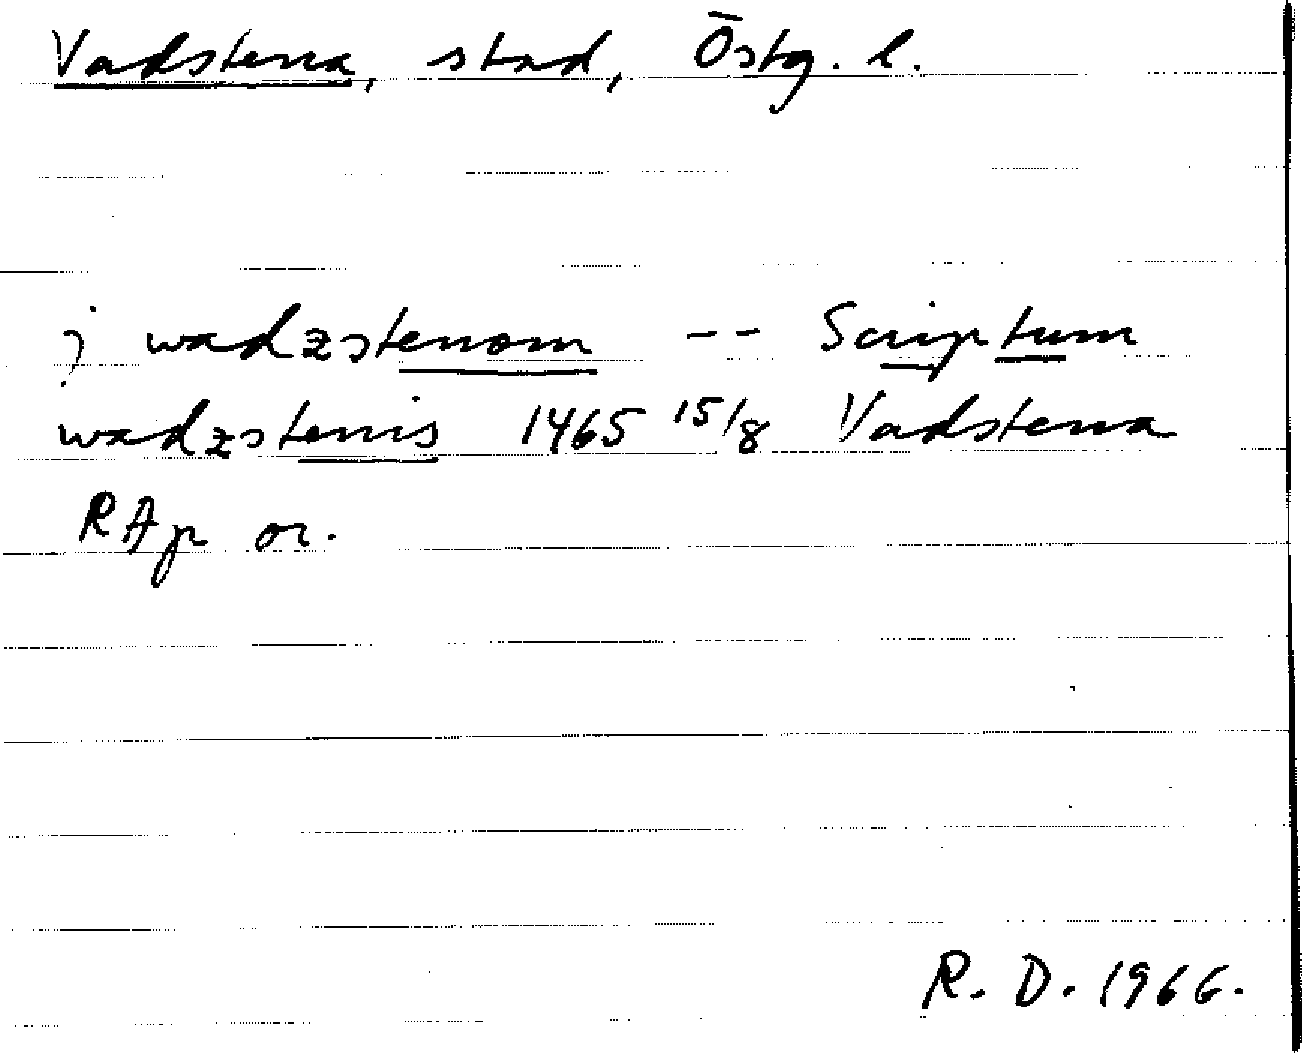 Vadstena, stad, Östg. l.
j wadzstenom -- Scriptum
wadzstenis 1465 15/8 Vadstena
RAp or.
R. D. 1966.